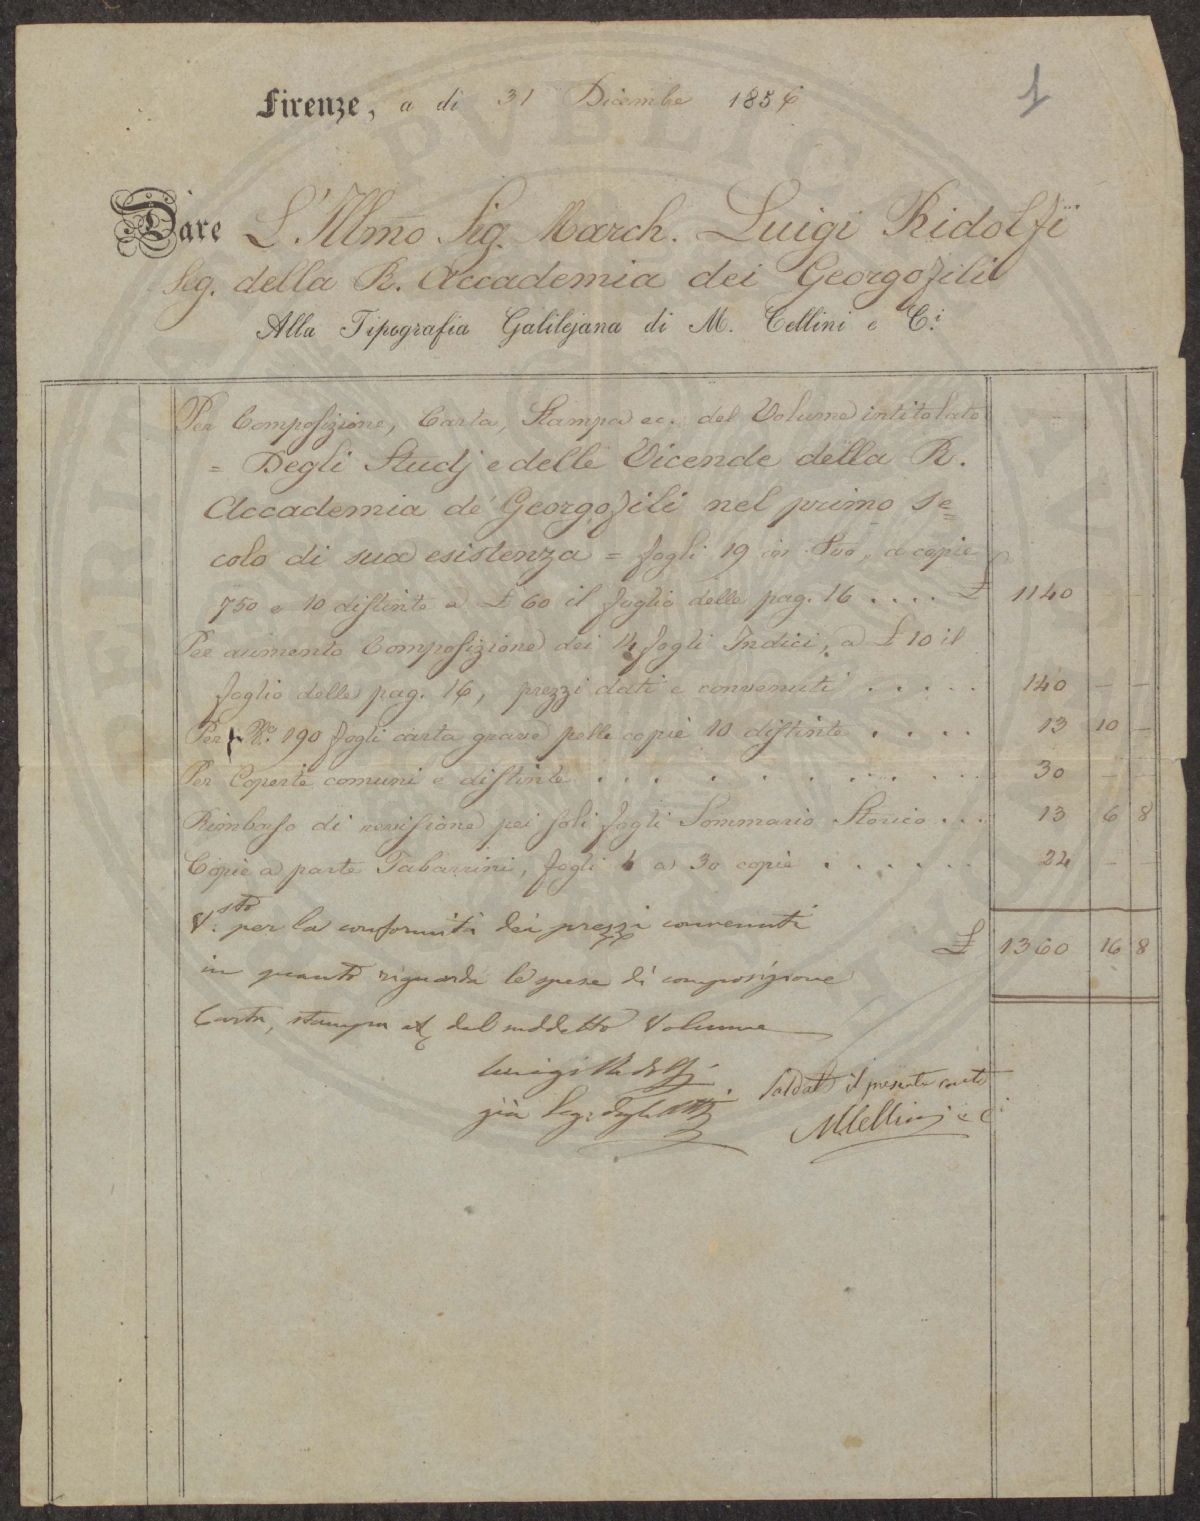 1
Firenze, a dì 31 Dicembre 1856
Dare L'Illmo Sig. March. Luigi Ridolfi
Seg. della R. Accademia dei Georgofili
Alla Tipografia Galilejana di M. Cellini e C.i
Per Composizione, Carta, Stampa ec. del Volume intitolato
= Degli Studj e delle Vicende della R.
Accademia de' Georgofili nel primo Se=
colo di sua esistenza = fogli 19 in 8vo, a copie
750 e 10 distinte a £ 60 il foglio delle pag. 16 . . . . £ 1140 — —
Per aumento Composizione dei 14 fogli Indici, a £ 10 il
foglio delle pag. 16, prezzi dati e convenuti . . . . . 140 — —
Per No. 190 fogli carta grave pelle copie 10 distinte . . . . 13 10 —
Per Coperte comuni e distinte . . . . . . . . . . 30 — —
Rimborso di revisione pei soli fogli Sommario Storico . . . 13 6 8
Copie a parte Tabarrini, fogli 4 a 30 copie . . . . . . 24 — —
V.sto per la conformità dei prezzi convenuti
£ 1360 16 8
in quanto riguarda le spese di composizione
Carta, stampa ec del suddetto Volume
Luigi Ridolfi
già Seg. degli Atti
Saldato il presente conto
MCellini e C.i